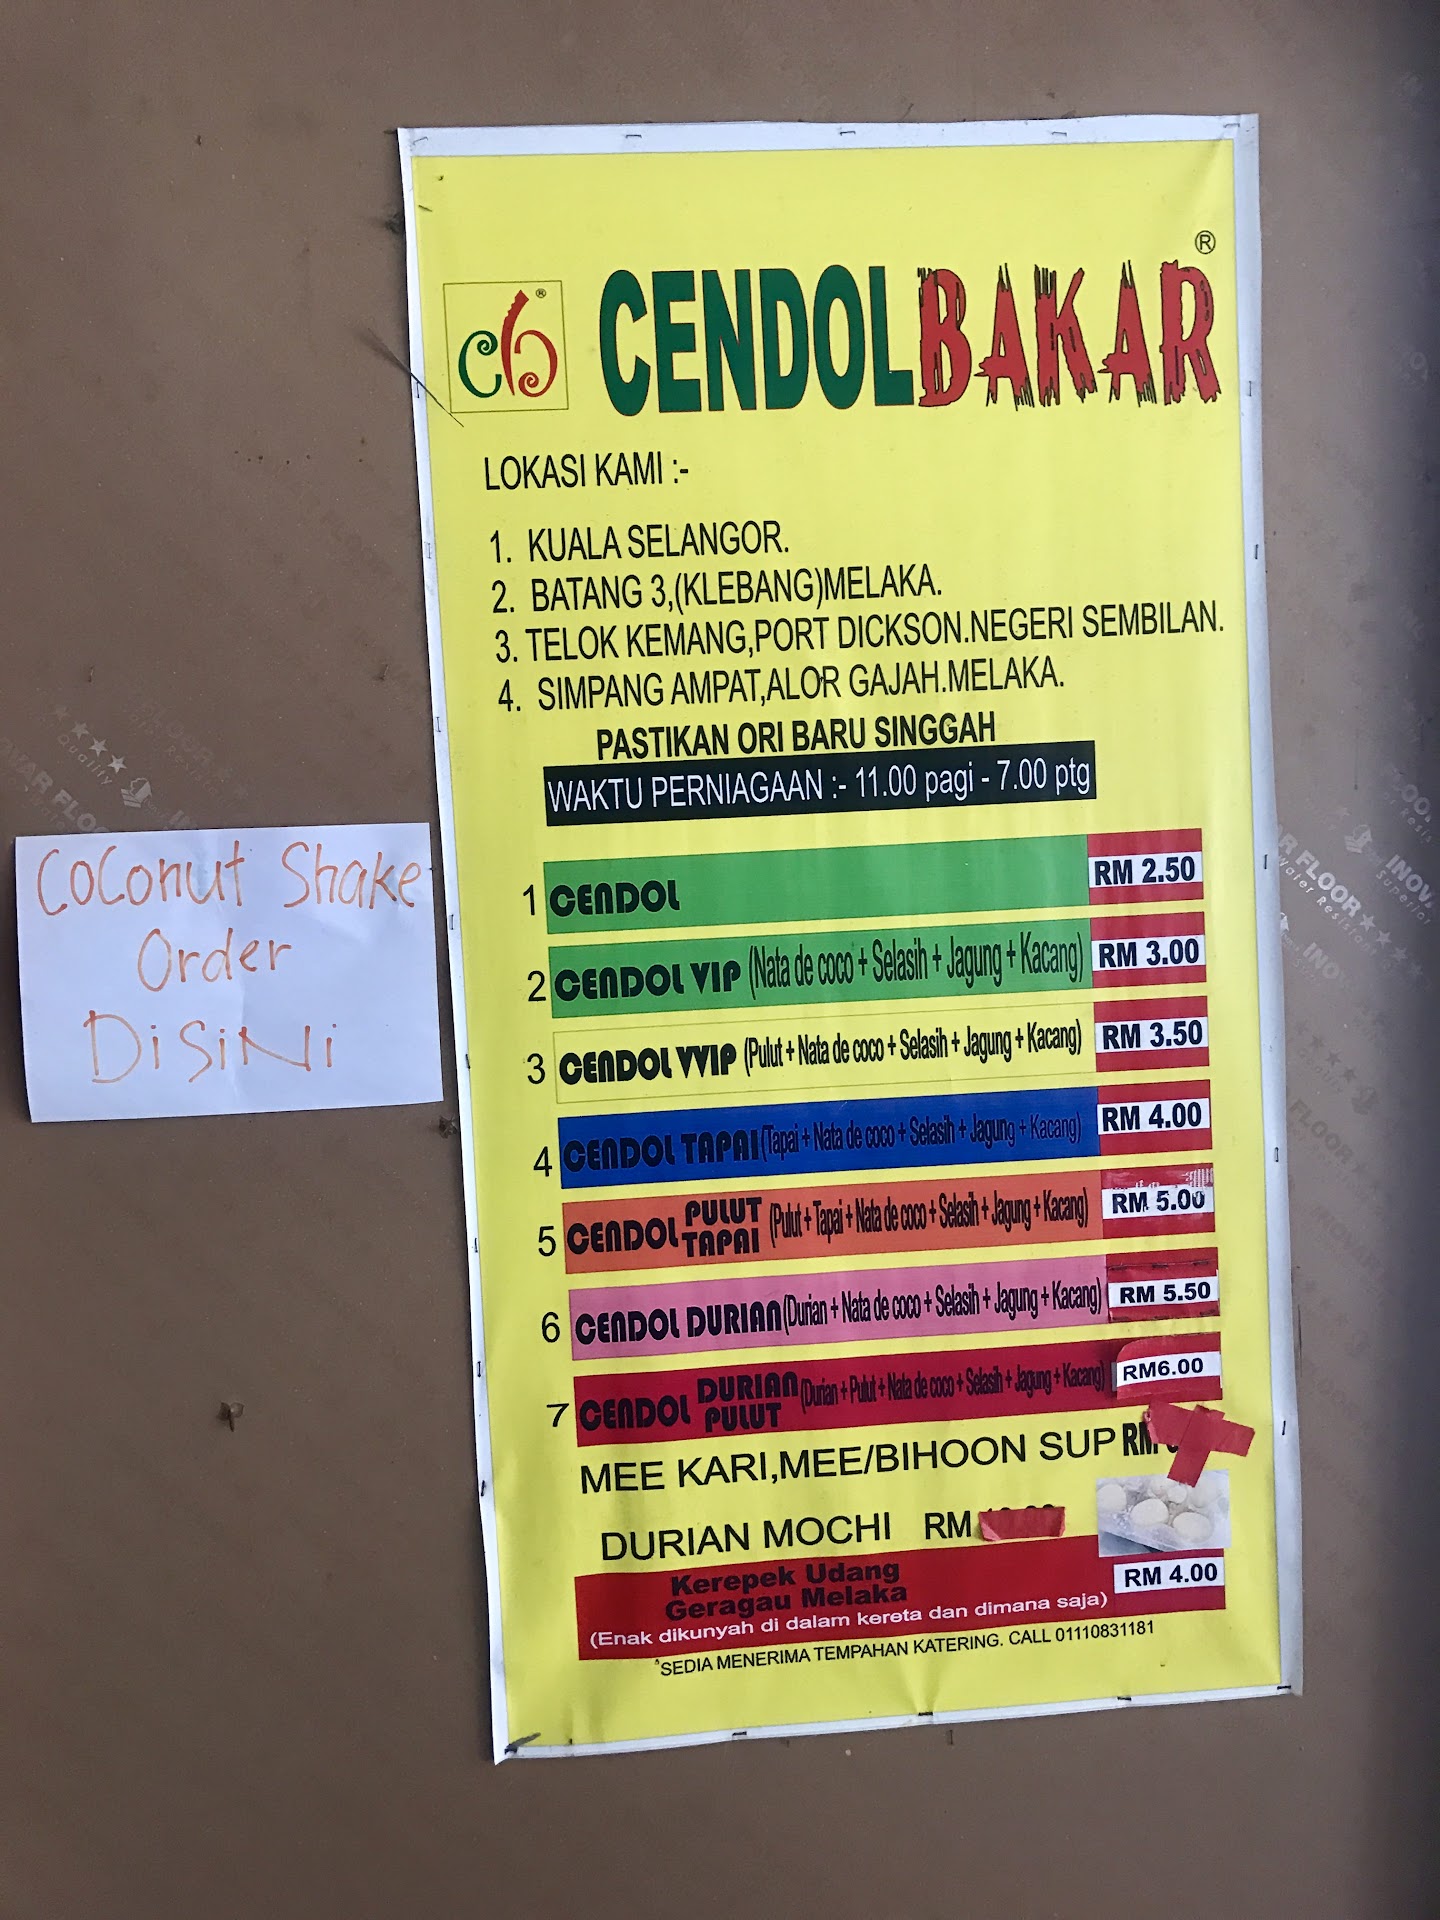 CENDOLBAKAR ®
cb ®
LOKASI KAMI :-
1. KUALA SELANGOR.
2. BATANG 3,(KLEBANG)MELAKA.
3. TELOK KEMANG,PORT DICKSON.NEGERI SEMBILAN.
4. SIMPANG AMPAT,ALOR GAJAH.MELAKA.
PASTIKAN ORI BARU SINGGAH
WAKTU PERNIAGAAN :- 11.00 pagi - 7.00 ptg
1 CENDOL RM 2.50
2 CENDOL VIP (Nata de coco + Selasih + Jagung + Kacang) RM 3.00
3 CENDOL VVIP (Pulut + Nata de coco + Selasih + Jagung + Kacang) RM 3.50
4 CENDOL TAPAI (Tapai + Nata de coco + Selasih + Jagung + Kacang) RM 4.00
5 CENDOL PULUT TAPAI (Pulut + Tapai + Nata de coco + Selasih + Jagung + Kacang) RM 5.00
6 CENDOL DURIAN (Durian + Nata de coco + Selasih + Jagung + Kacang) RM 5.50
7 CENDOL DURIAN PULUT (Durian + Pulut + Nata de coco + Selasih + Jagung + Kacang) RM6.00
MEE KARI,MEE/BIHOON SUP RM
DURIAN MOCHI RM
Kerepek Udang
Geragau Melaka RM 4.00
(Enak dikunyah di dalam kereta dan dimana saja)
*SEDIA MENERIMA TEMPAHAN KATERING. CALL 01110831181
Coconut Shake
Order
DiSiNi